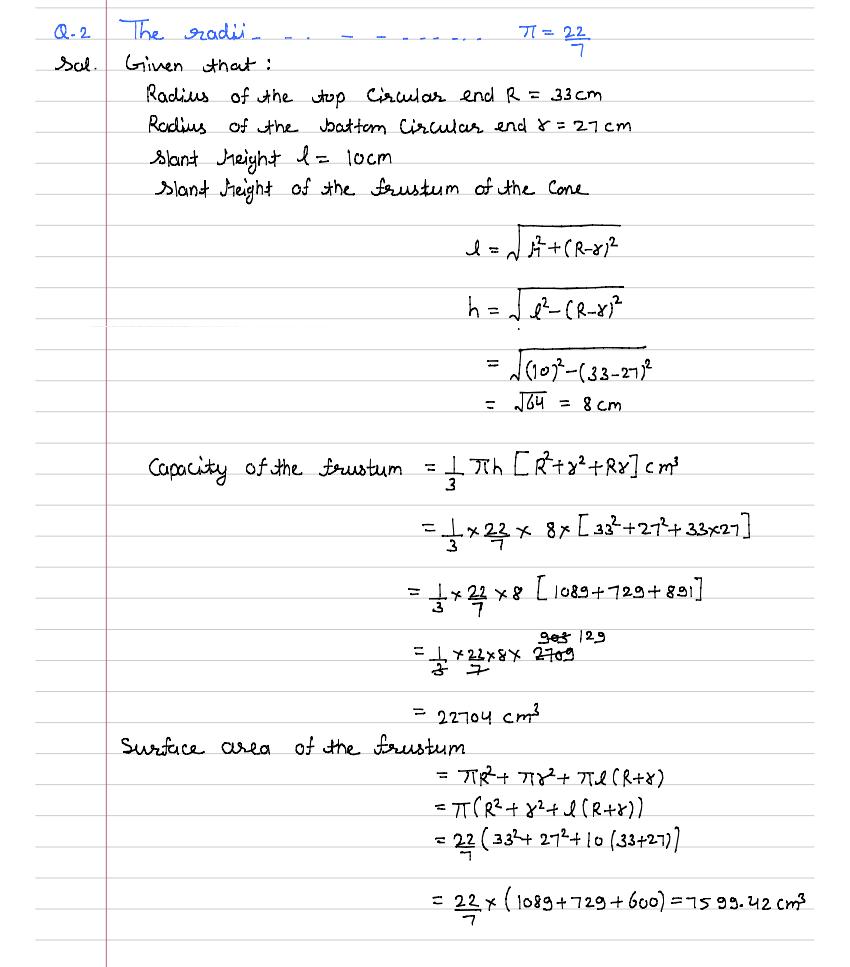 Q.2 The radii - - - . - - - - - - - - .. π = 22/7
Sol. Given that :
Radius of the top Circular end R = 33cm
Radius of the bottom Circular end r = 27cm
Slant height l = 10cm
Slant height of the frustum of the Cone
l = √h²+(R-r)²
h = √l²-(R-r)²
= √(10)²-(33-27)²
= √64 = 8cm
Capacity of the frustum = 1/3 πh [R²+r²+Rr] cm³
= 1/3 × 22/7 × 8× [33²+27²+33×27]
= 1/3 × 22/7 ×8 [1089+729+891]
903 129
= 1/3 × 22/7 ×8× 2709
= 22704 cm³
Surface area of the frustum
= πR²+ πr²+ πl(R+r)
= π(R²+ r²+l(R+r))
= 22/7 (33²+ 27²+10(33+27)]
= 22/7 × (1089+729+600) = 7599.42 cm³